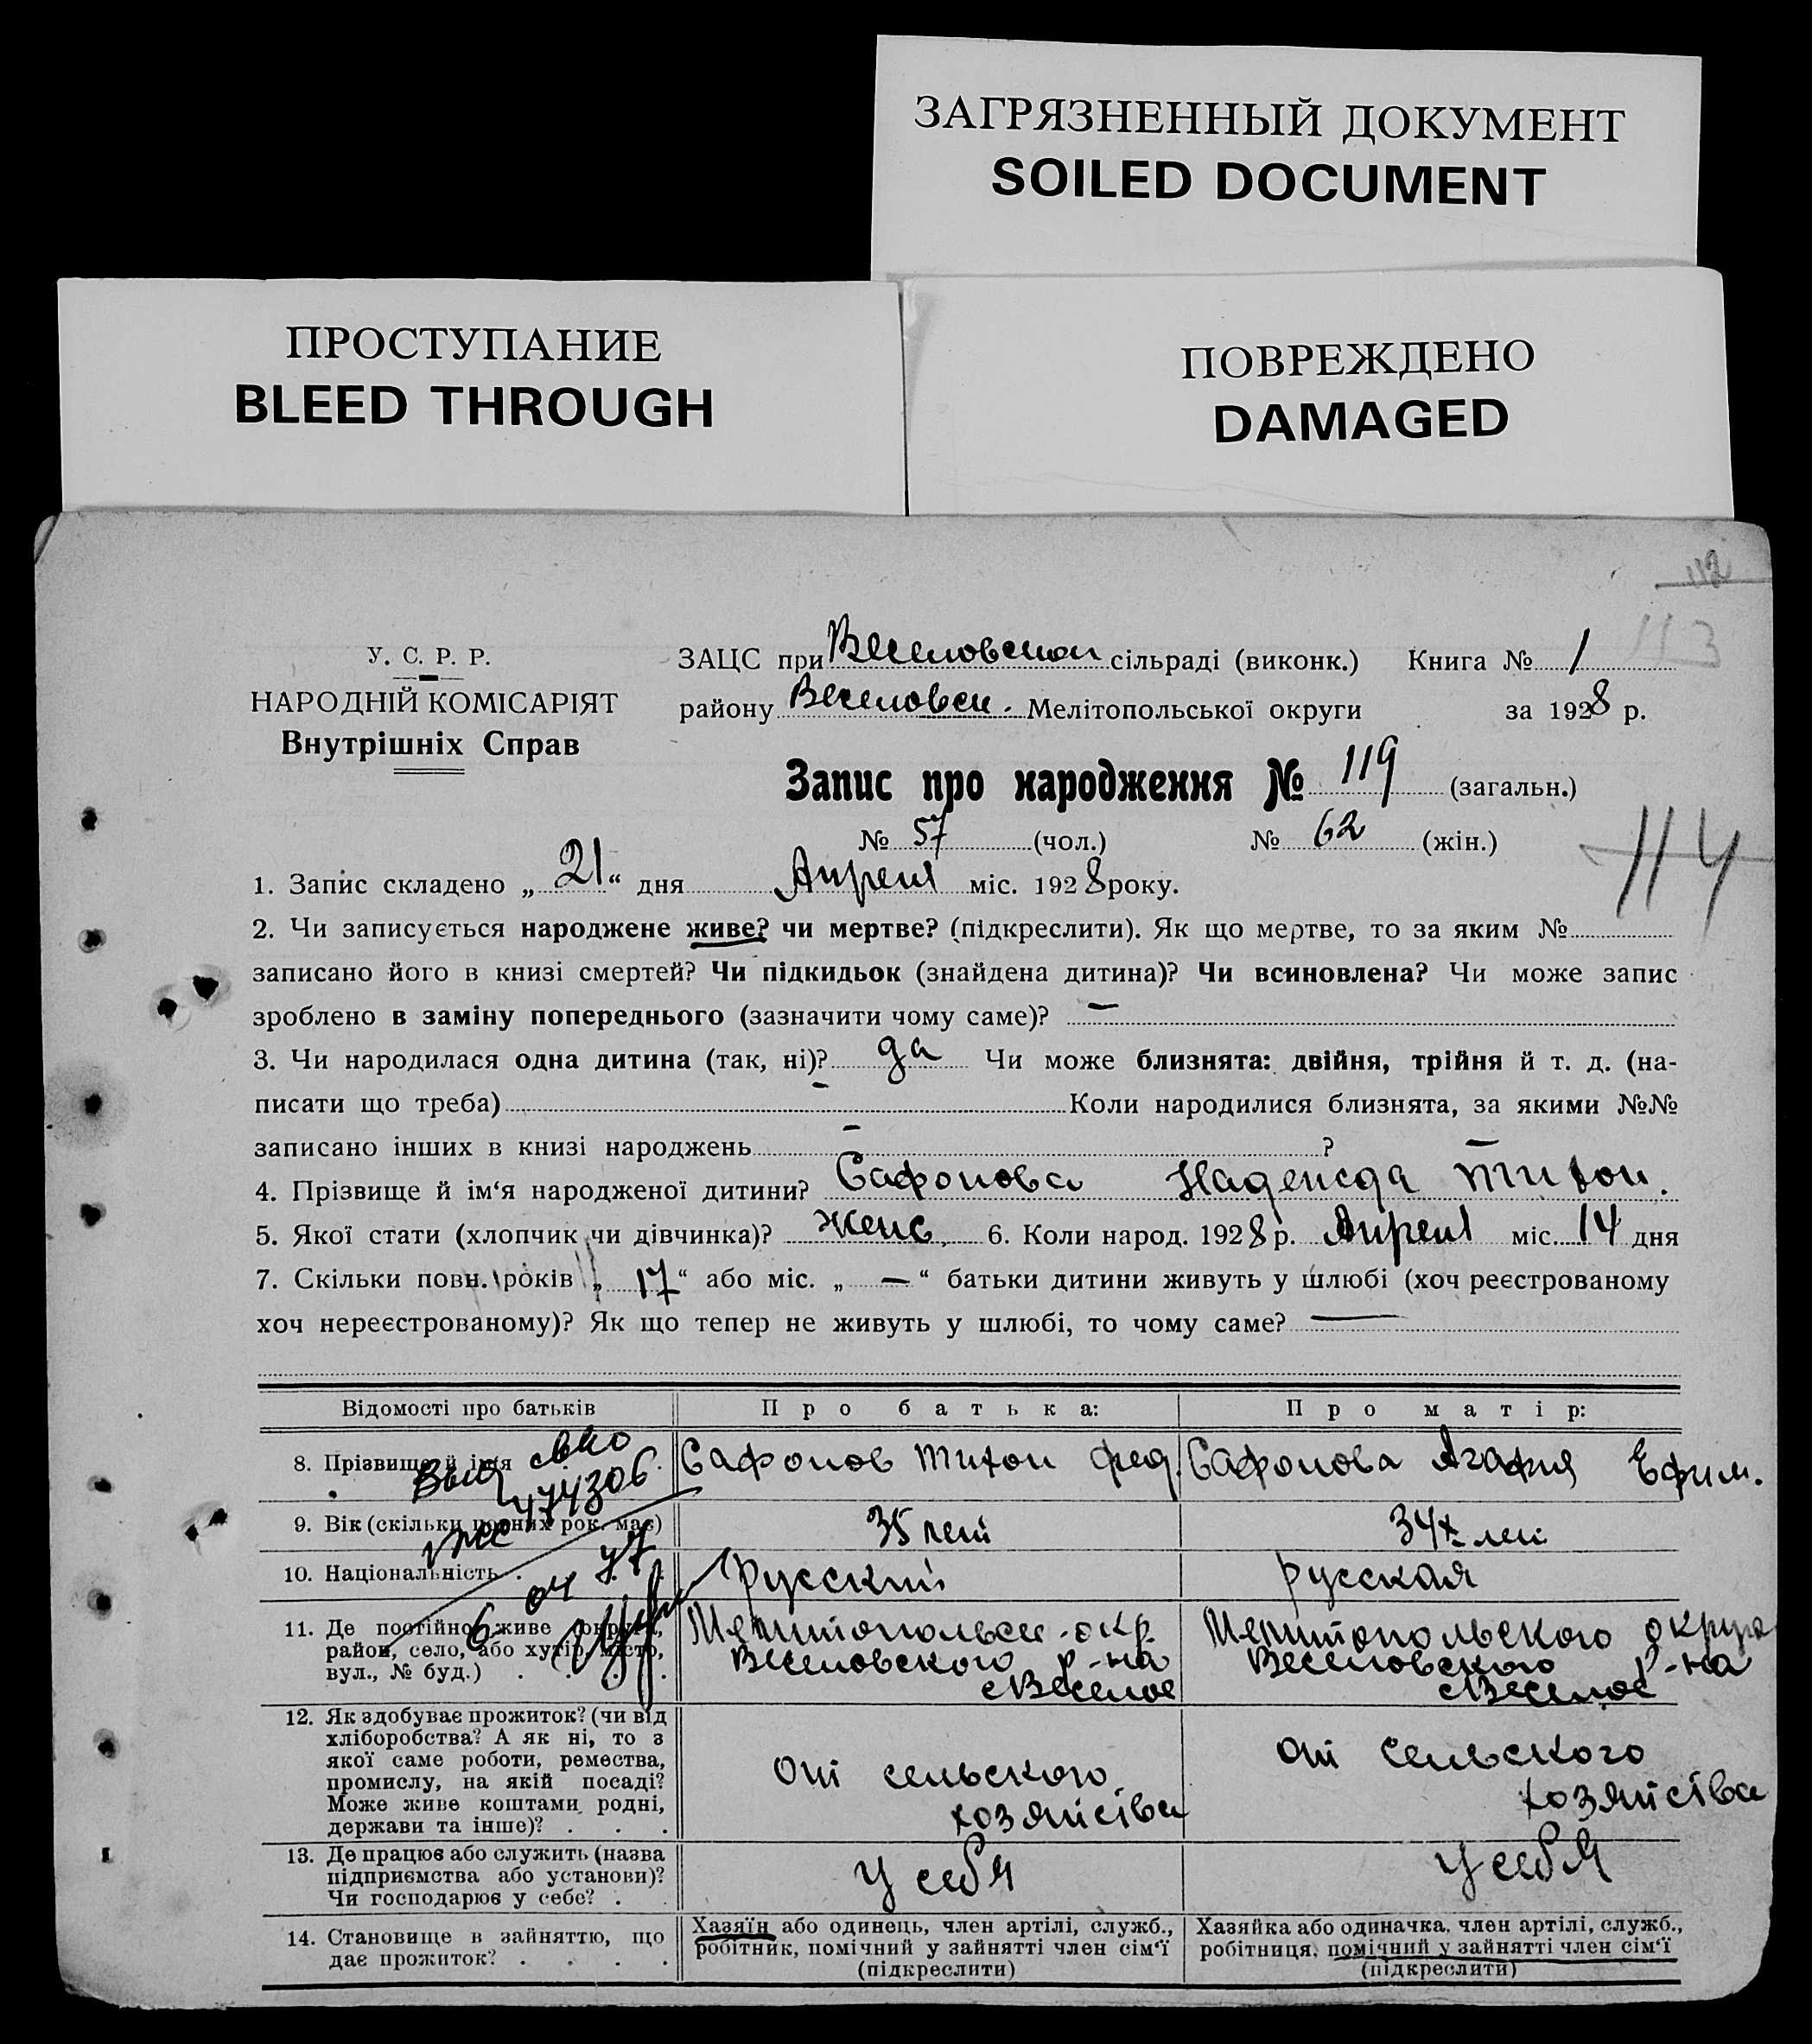 ЗАГРЯЗНЕННЫЙ ДОКУМЕНТ
SOILED DOCUMENT
ПРОСТУПАНИЕ
BLEED THROUGH
ПОВРЕЖДЕНО
DAMAGED
112
113
У. С. Р. Р.
НАРОДНІЙ КОМІСАРІЯТ
Внутрішніх Справ
ЗАЦС при Веселовском сільраді (виконк.) Книга № 1
району Веселовск. Мелітопольської округи за 1928 р.
Запис про народження № 119 (загальн.)
№ 57 (чол.) № 62 (жін.)
114
1. Запис складено „ 21 “ дня Апреля міс. 1928 року.
2. Чи записується народжене живе? чи мертве? (підкреслити). Як що мертве, то за яким №
записано його в книзі смертей? Чи підкидьок (знайдена дитина)? Чи всиновлена? Чи може запис
зроблено в заміну попереднього (зазначити чому саме)? —
3. Чи народилася одна дитина (так, ні)? да Чи може близнята: двійня, трійня й т. д. (на-
писати що треба) — Коли народилися близнята, за якими №№
записано інших в книзі народжень — ? —
4. Прізвище й ім‘я народженої дитини? Сафонова Надежда Тихон.
5. Якої стати (хлопчик чи дівчинка)? женс. 6. Коли народ. 1928 р. Апреля міс. 14 дня
7. Скільки повн. років „ 17 “ або міс. „ — “ батьки дитини живуть у шлюбі (хоч реєстрованому
хоч нереєстрованому)? Як що тепер не живуть у шлюбі, то чому саме? —
Відомості про батьків Про батька: Про матір:
8. Прізвище й ім‘я Сафонов Тихон Фед. Сафонова Агафия Ефим.
474306
9. Вік (скільки повних рок. має) 35 лет 34х лет
10. Національність русский русская
6 04 77
11. Де постійно живе (округа,
район, село, або хутір, місто,
вул., № буд.)
Мелитопольск. окр.
Веселовского р-на
с Веселое
Мелитопольского округа
Веселовского р-на
с Веселое
12. Як здобуває прожиток? (чи від
хліборобства? А як ні, то з
якої саме роботи, ремества,
промислу, на якій посаді?
Може живе коштами родні,
держави та інше)?
От сельского
хозяйства
От сельского
хозяйства
13. Де працює або служить (назва
підприємства або установи)?
Чи господарює у себе?
У себя
У себя
14. Становище в зайняттю, що
дає прожиток?
Хазяїн або одинець, член артілі, служб.,
робітник, помічний у зайнятті член сім‘ї
(підкреслити)
Хазяйка або одиначка, член артілі, служб.,
робітниця, помічний у зайнятті член сім‘ї
(підкреслити)